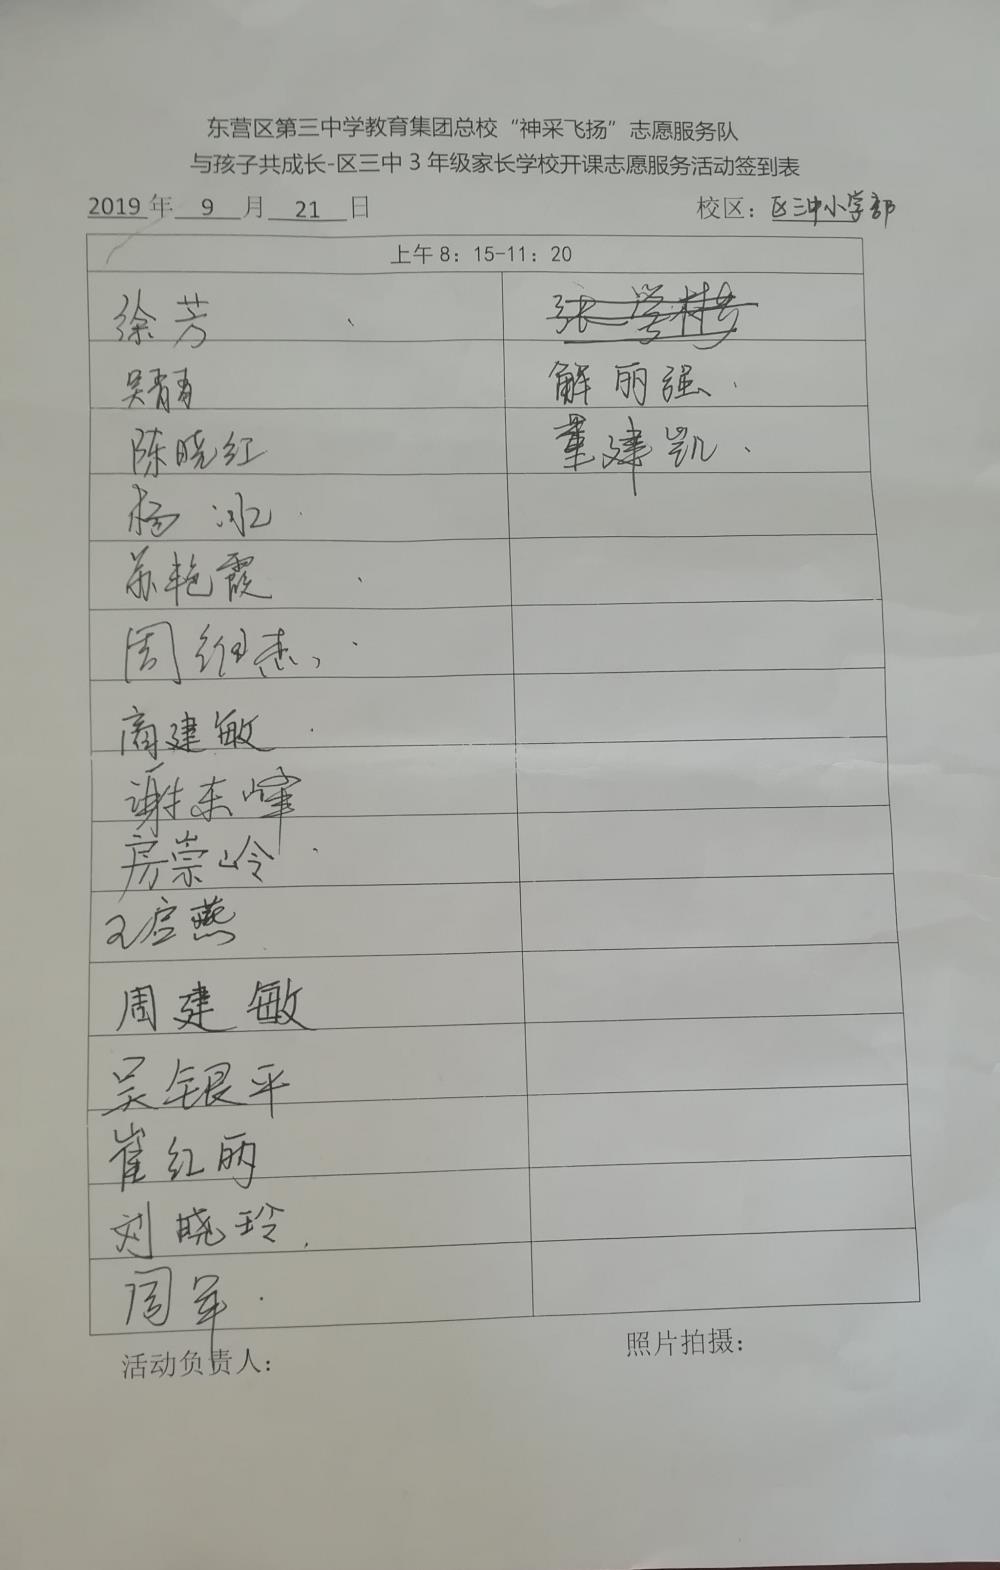 东营区第三中学教育集团总校“神采飞扬”志愿服务队
与孩子共成长-区三中3年级家长学校开课志愿服务活动签到表
2019年 9 月 21 日 校区：区三中小学部
上午8：15-11：20
徐芳
吴青青 解丽强
陈晓红 董建凯
杨冰
苏艳霞
周继杰
商建敏
谢东峰
房崇岭
王启燕
周建敏
吴银平
崔红丽
刘晓玲
闫军
活动负责人： 照片拍摄：